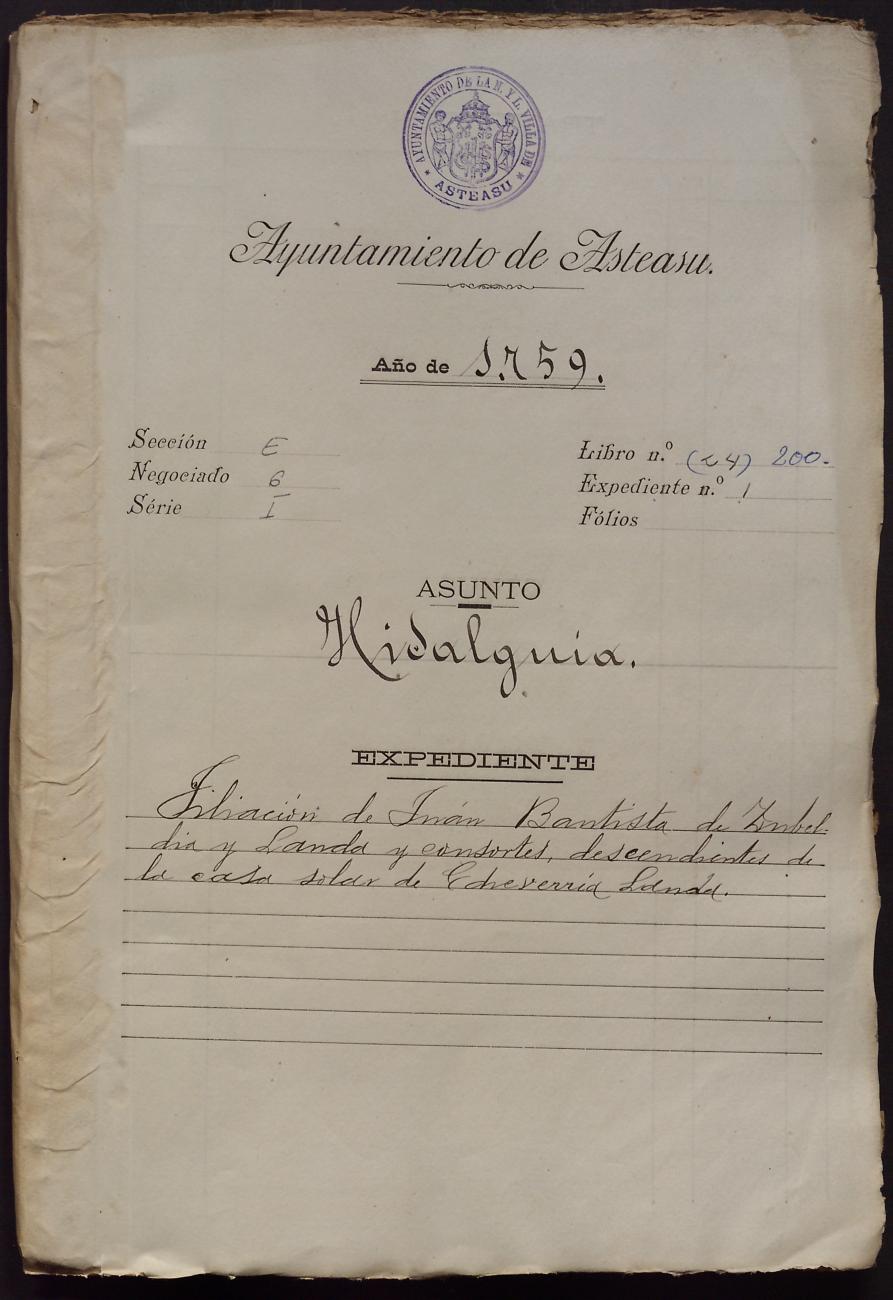 AYUNTAMIENTO DE LA N. Y L. VILLA DE
* ASTEASU *
Ayuntamiento de Asteasu.
Año de 1.759.
Sección E
Negociado 6
Série I
Libro n.º (24) 200.
Expediente n.º 1
Fólios
ASUNTO
Hidalguia.
EXPEDIENTE
Filiación de Juán Bautista de Zubel-
dia y Landa y consortes, descendientes de
la casa solar de Echeverría Landa.